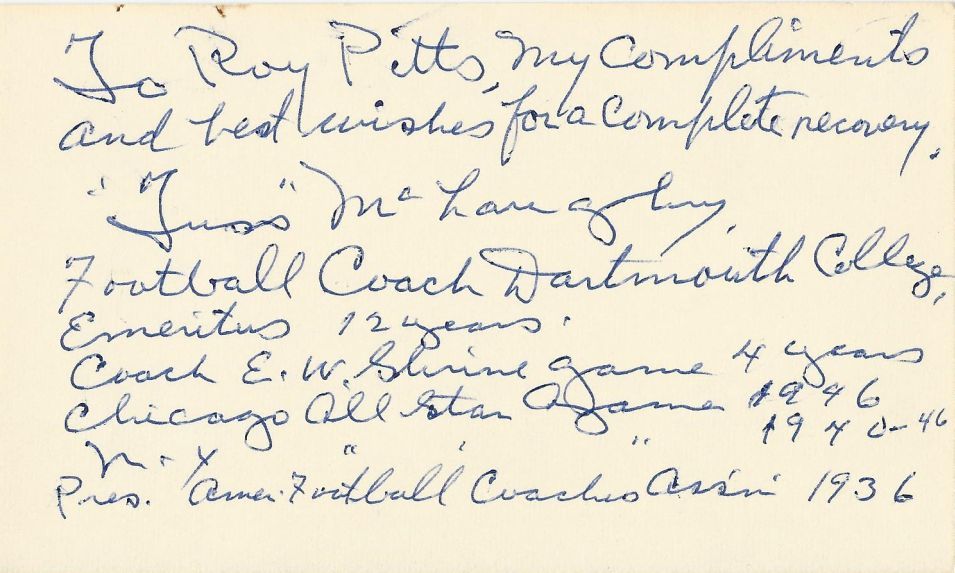 To Roy Pitts, My Compliments
and best wishes for a complete recovery.
"Tuss" McLaughry,
Football Coach Dartmouth College,
Emeritus 12 years.
Coach E. W. Shrine game 4 years
Chicago All Star Game 1946
N. Y " " " 1940-46
Pres. Amer. Football Coaches Ass'n 1936